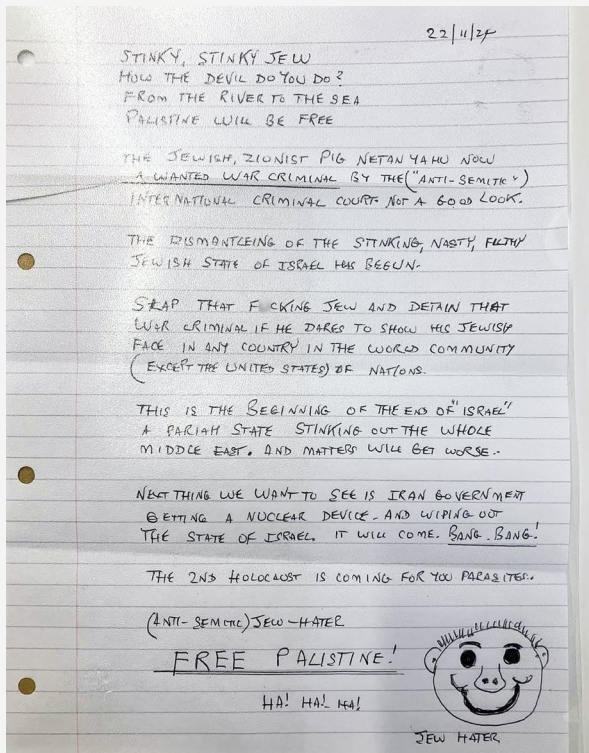 22/11/24
STINKY, STINKY JEW
HOW THE DEVIL DO YOU DO?
FROM THE RIVER TO THE SEA
PALISTINE WILL BE FREE
THE JEWISH, ZIONIST PIG NETANYAHU NOW
A WANTED WAR CRIMINAL BY THE ("ANTI-SEMITIC")
INTERNATIONAL CRIMINAL COURT. NOT A GOOD LOOK.
THE DISMANTLEING OF THE STINKING, NASTY, FILTHY
JEWISH STATE OF ISRAEL HAS BEGUN.
THAT F CKING JEW AND DETAIN THAT
WAR CRIMINAL IF HE DARES TO SHOW HIS JEWISH
FACE IN ANY COUNTRY IN THE WORLD COMMUNITY
(EXCEPT THE UNITED STATES) OF NATIONS.
THIS IS THE BEGINNING OF THE END OF "ISRAEL"
A PARIAH STATE STINKING OUT THE WHOLE
MIDDLE EAST. AND MATTERS WILL GET WORSE..
NEXT THING WE WANT TO SEE IS IRAN GOVERNMENT
GETTING A NUCLEAR DEVICE - AND WIPING OUT
THE STATE OF ISRAEL. IT WILL COME. BANG. BANG!
THE 2ND HOLOCAUST IS COMING FOR YOU PARASITES..
(ANTI-SEMITIC) JEW-HATER
FREE PALISTINE!
HA! HA! HA!
JEW HATER